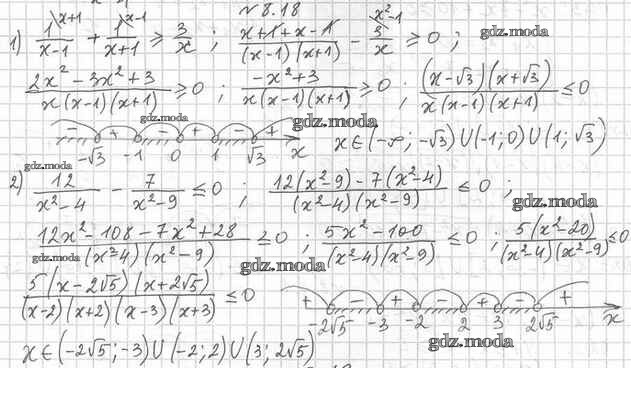 № 8.18
1) 1\x+1 / (x-1) + 1\x-1 / (x+1) ≥ 3/x ; (x+1+x-1) / ((x-1)(x+1)) - 3\x²-1 / x ≥ 0 ; gdz.moda
(2x² - 3x² + 3) / (x(x-1)(x+1)) ≥ 0 ; (-x² + 3) / (x(x-1)(x+1)) ≥ 0 ; ((x-√3)(x+√3)) / (x(x-1)(x+1)) ≤ 0
gdz.moda gdz.moda
- + - + - +
-√3 -1 0 1 √3 x x∈(-∞; -√3)∪(-1; 0)∪(1; √3)
gdz.moda
2) 12 / (x²-4) - 7 / (x²-9) ≤ 0 ; (12(x²-9) - 7(x²-4)) / ((x²-4)(x²-9)) ≤ 0 ;
gdz.moda
(12x² - 108 - 7x² + 28) / ((x²-4)(x²-9)) ≤ 0 ; (5x² - 100) / ((x²-4)(x²-9)) ≤ 0 ; 5(x²-20) / ((x²-4)(x²-9)) ≤ 0
gdz.moda gdz.moda
(5(x-2√5)(x+2√5)) / ((x-2)(x+2)(x-3)(x+3)) ≤ 0
+ - + - + - +
-2√5 -3 -2 2 3 2√5 x
x∈(-2√5; -3)∪(-2; 2)∪(3; 2√5)
gdz.moda